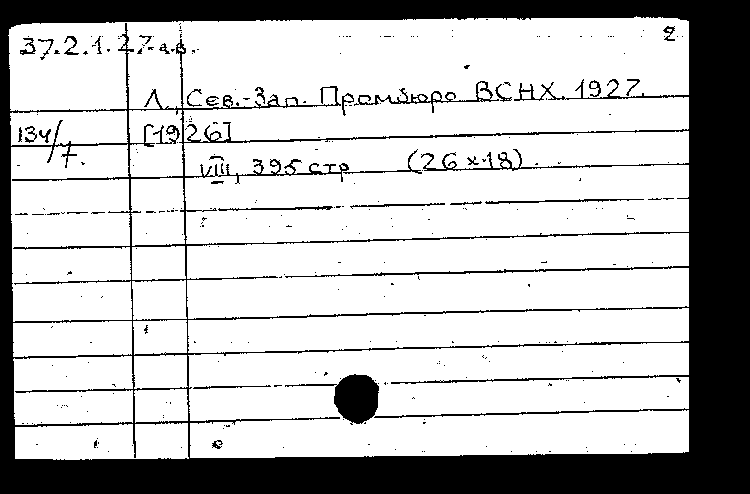 37.2.1.27-а.в. 2
Л., Сев.-Зап. Промбюро ВСНХ. 1927.
134/7. [1926]
VIII, 395 стр (26×18).